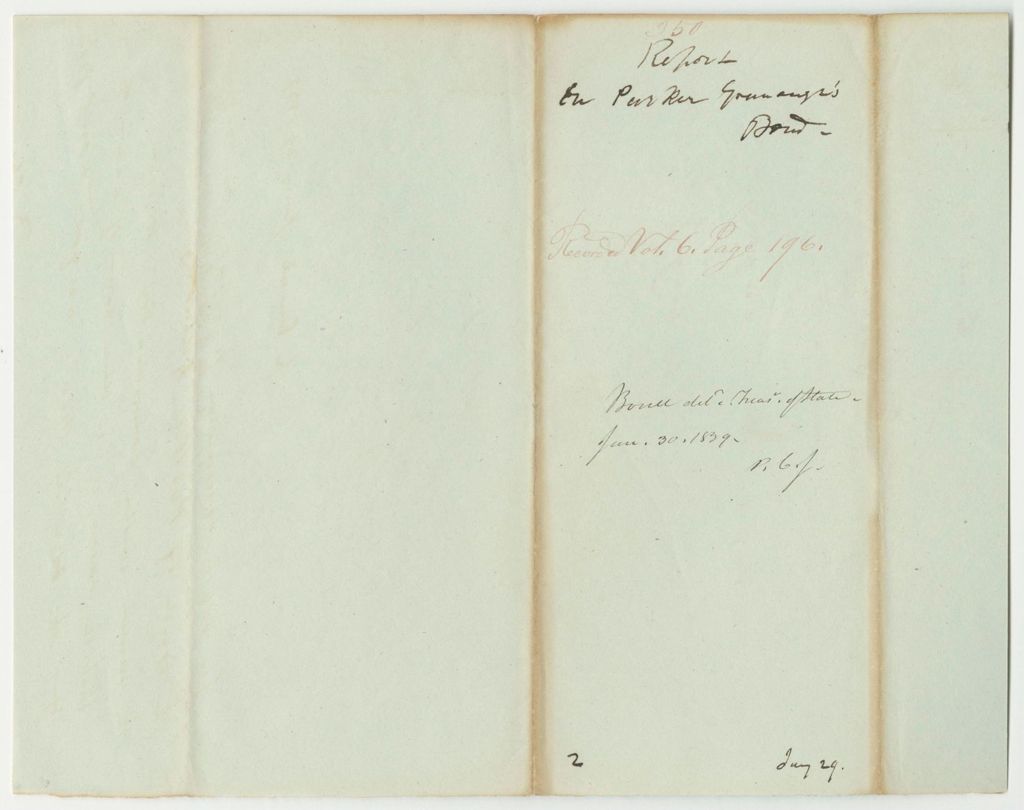 350
Report
On Parker
Bond.
Recorded Vol. 6. Page 196.
Bond del'd Treas'r. of State.
Jan. 30. 1839.
P. C. J.
2 Jany 29.